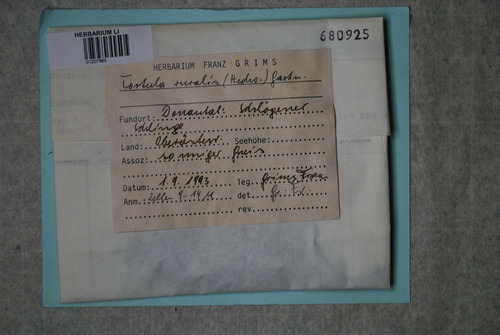 HERBARIUM LI
01207965
680925
HERBARIUM FRANZ GRIMS
Tortula ruralis (Hedw.) Gaertn.
Fundort: Donautal: Schlögener
Schlinge
Land: Oberösterr. Seehöhe:
Assoz: sonniger Gneis
Datum: 1.9.1993 leg. Grims Franz
Anm. det. Gs. Fr.
rev.